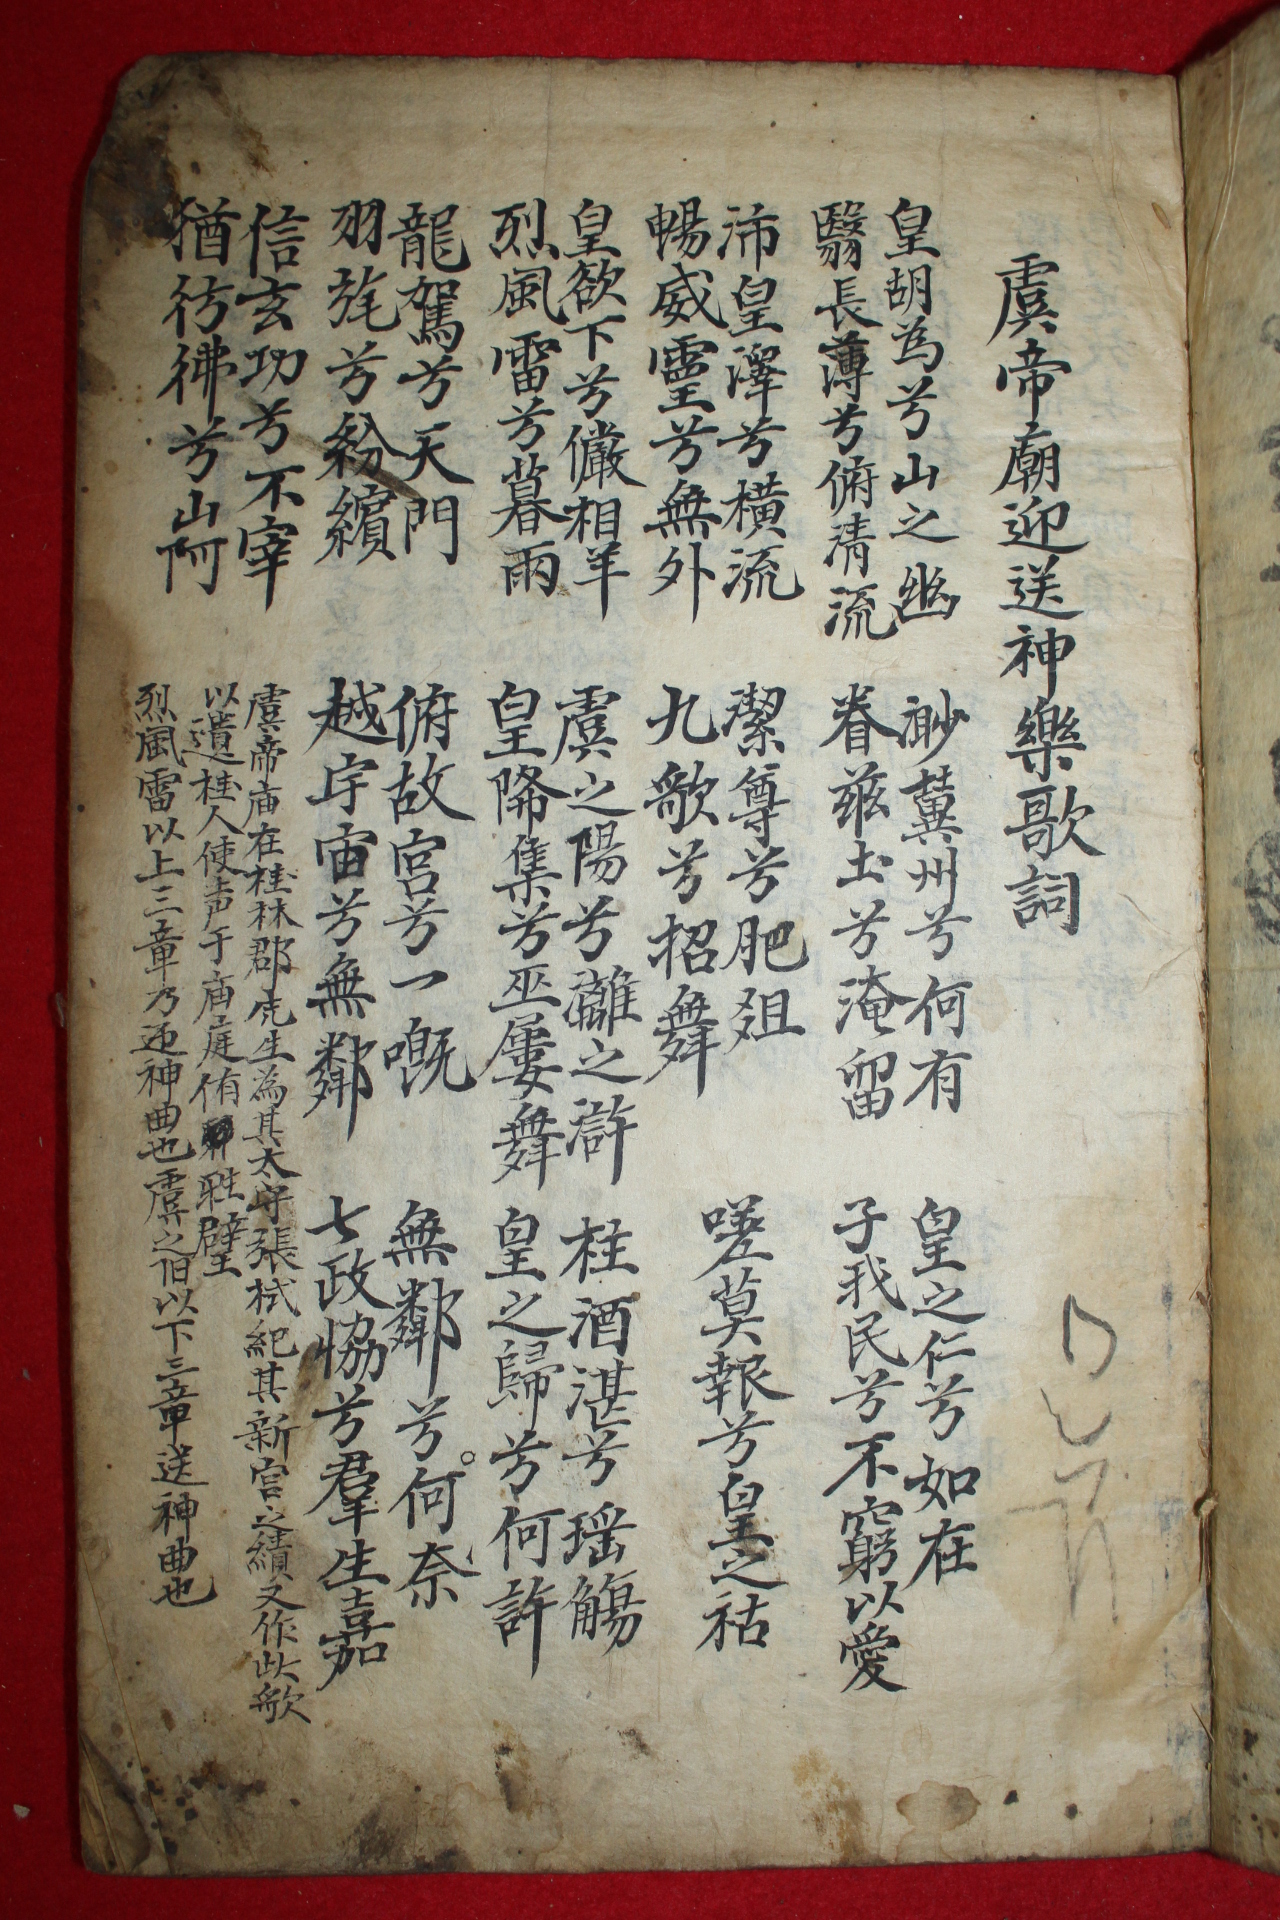 虞帝廟迎送神樂歌詞
皇胡為兮山之幽
翳長薄兮俯清流
渺冀州兮何有
眷玆土兮淹留
皇之仁兮如在
子我民兮不窮以愛
沛皇澤兮橫流
暢威靈兮無外
潔尊兮肥俎
九歌兮招舞
嗟莫報兮皇之祜
皇欲下兮儼相羊
烈風雷兮暮雨
虞之陽兮灕之滸
皇降集兮巫屢舞
桂酒湛兮瑶觴
皇之歸兮何許
龍駕兮天門
羽旄兮紛繽
俯故宮兮一慨
越宇宙兮無鄰
無鄰兮何奈
七政恊兮羣生嘉
信玄功兮不宰
猶彷彿兮山阿
虞帝庙在桂林郡先生為其太守張栻紀其新宮之績又作此歌
以遺桂人使声于庙庭侑牲璧
烈風雷以上三章乃迎神曲也虞之旧以下三章送神曲也